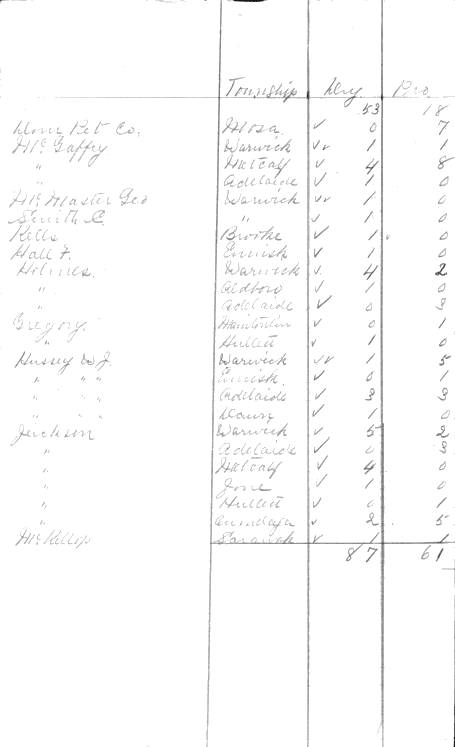 Township Dry Pro.
53 18
Dom Pet Co. Mosa ✓ 0 7
Mc Gaffey Warwick ✓✓ 1 1
" Metcalf ✓ 4 8
" Adelaide ✓ 1 0
Mc Master Geo Warwick ✓✓ 1 0
Smith C. " ✓ 1 0
Kells Brooke ✓ 1 0
Hall F. Ennisk ✓ 1 0
Holmes. Warwick ✓ 4 2
" Aldboro ✓ 1 0
" Adelaide ✓ 0 3
Gregory. ✓ 0 1
" Hullett ✓ 1 0
Hussey W J. Warwick ✓✓ 1 5
" " " Ennisk. ✓ 0 1
" " " Adelaide ✓ 3 3
" " " ✓ 1 0
Jackson Warwick ✓ 5 2
" Adelaide ✓ 0 3
" Metcalf ✓ 4 0
" ✓ 1 0
" Hullett ✓ 0 1
" ✓ 2 5
Mc Killop Sarawak ✓ 1 1
87 61